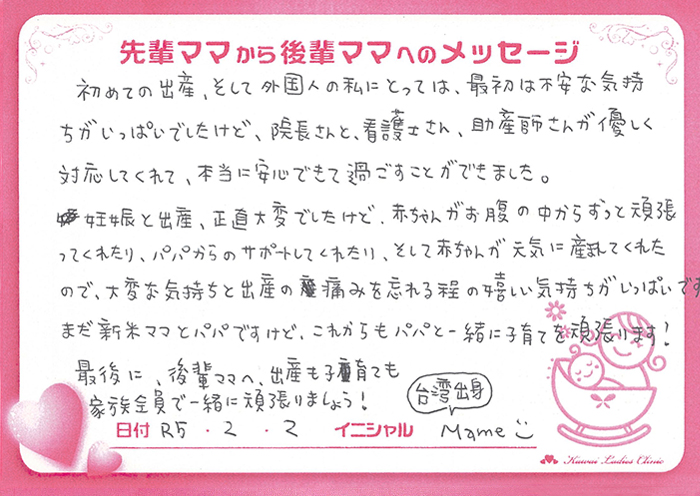 先輩ママから後輩ママへのメッセージ
初めての出産、そして外国人の私にとっては、最初は不安な気持
ちがいっぱいでしたけど、院長さんと、看護士さん、助産師さんが優しく
対応してくれて、本当に安心できて過ごすことができました。
妊娠と出産、正直大変でしたけど、赤ちゃんがお腹の中からずっと頑張
ってくれたり、パパからのサポートしてくれたり、そして赤ちゃんが元気に産まれてくれた
ので、大変な気持ちと出産の痛みを忘れる程の嬉しい気持ちがいっぱいです
まだ新米ママとパパですけど、これからもパパと一緒に子育てを頑張ります!
最後に、後輩ママへ、出産も子育ても
家族全員で一緒に頑張りましょう!
台湾出身
日付 R5・2・2 イニシャル Mame
Kawai Ladies Clinic